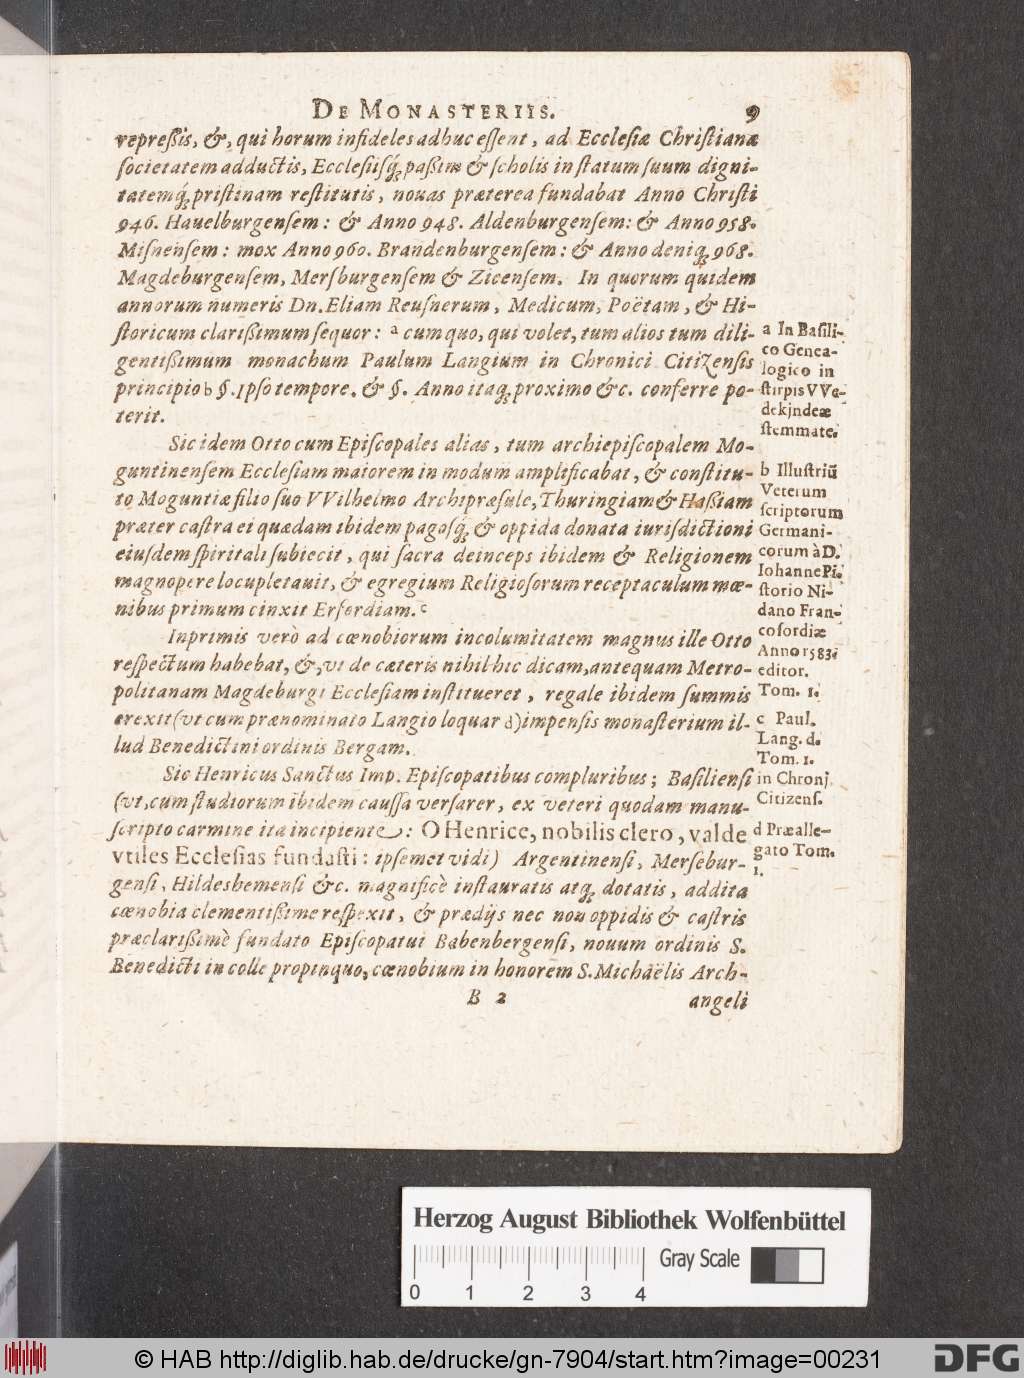 DE MONASTERIIS. 9
repreſsis, &, qui horum infideles adhuc eſſent, ad Eccleſiæ Chriſtianæ
ſocietatem adductis, Eccleſiiſq́; paßim & ſcholis in ſtatum ſuum digni-
tatemq́; priſtinam reſtitutis, nouas præterea fundabat Anno Chriſti
946. Hauelburgenſem: & Anno 948. Aldenburgenſem: & Anno 958.
Miſnenſem: mox Anno 960. Brandenburgenſem: & Anno deniq; 968.
Magdeburgenſem, Merſburgenſem & Zicenſem. In quorum quidem
annorum numeris Dn. Eliam Reuſnerum, Medicum, Poëtam, & Hi-
ſtoricum clarißimum ſequor: a cum quo, qui volet, tum alios tum dili-
gentißimum monachum Paulum Langium in Chronici Citizenſis
principio b §. Ipſo tempore. & §. Anno itaq; proximo &c. conferre po-
terit.
Sic idem Otto cum Epiſcopales alias, tum archiepiſcopalem Mo-
guntinenſem Eccleſiam maiorem in modum amplificabat, & conſtitu-
to Moguntiæ filio ſuo VVilhelmo Archipræſule, Thuringiam & Haßiam
præter caſtra ei quædam ibidem pagoſq́; & oppida donata iuriſdictioni
eiuſdem ſpiritali ſubiecit, qui ſacra deinceps ibidem & Religionem
magnopere locupletauit, & egregium Religioſorum receptaculum mœ-
nibus primum cinxit Erfordiam. c
Inprimis verò ad cœnobiorum incolumitatem magnus ille Otto
reſpectum habebat, &, vt de cæteris nihil hic dicam, antequam Metro-
politanam Magdeburgi Eccleſiam inſtitueret, regale ibidem ſummis
erexit (vt cum prænominato Langio loquar d) impenſis monaſterium il-
lud Benedictini ordinis Bergam.
Sic Henricus Sanctus Imp. Epiſcopatibus compluribus; Baſilienſi
(vt, cum ſtudiorum ibidem cauſſa verſarer, ex veteri quodam manu-
ſcripto carmine ita incipiente: O Henrice, nobilis clero, valde
vtiles Eccleſias fundaſti: ipſemet vidi) Argentinenſi, Merſebur-
genſi, Hildeshemenſi &c. magnificè inſtauratis atq; dotatis, addita
cœnobia clementißime reſpexit, & prædijs nec non oppidis & caſtris
præclarißimè fundato Epiſcopatui Babenbergenſi, nouum ordinis S.
Benedicti in colle propinquo, cœnobium in honorem S. Michaëlis Arch-
B 2 angeli
a In Baſili-
co Genea-
logico in
ſtirpis VVe-
dekindeæ
ſtemmate.
b Illuſtriū
Veterum
ſcriptorum
Germani-
corum à D.
Iohanne Pi-
ſtorio Ni-
dano Fran-
cofordiæ
Anno 1583.
editor.
Tom. 1.
c Paul.
Lang. d.
Tom. 1.
in Chron.
Citizenſ.
d Præalle-
gato Tom.
1.
Herzog August Bibliothek Wolfenbüttel
Gray Scale
0 1 2 3 4
© HAB http://diglib.hab.de/drucke/gn-7904/start.htm?image=00231
DFG